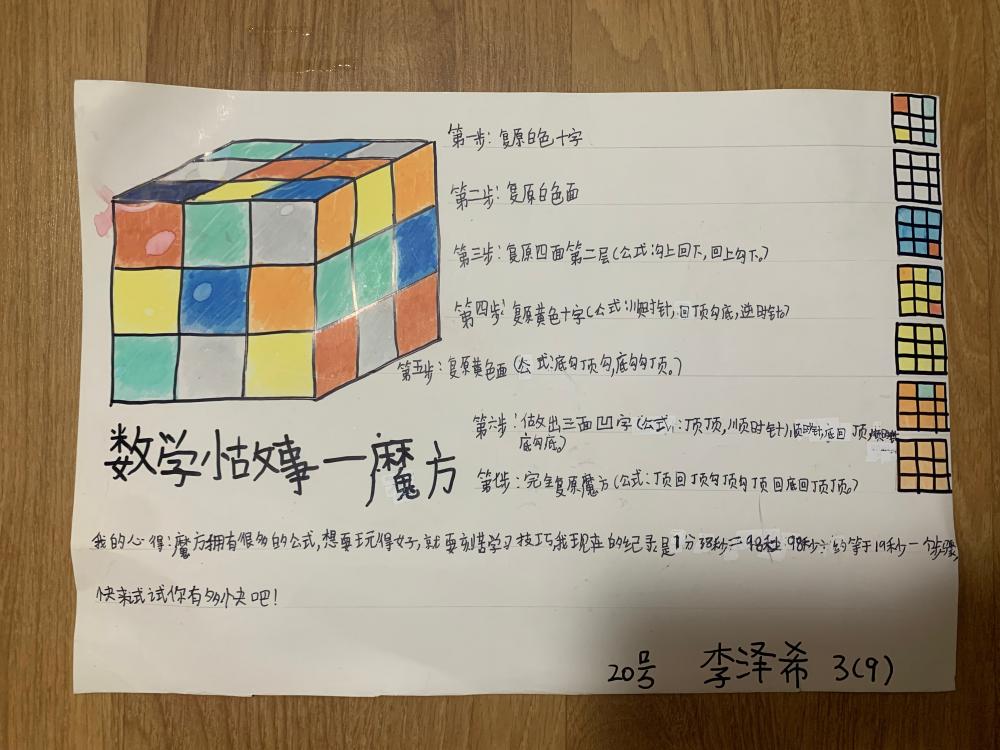 第一步：复原白色十字
第二步：复原白色面
第三步：复原四面第二层(公式：沟上回下，回上勾下。)
第四步：复原黄色十字(公式：顺时针，回顶勾底，逆时针。)
第五步：复原黄色面(公式：底勾顶勾，底勾勾顶。)
第六步：做出三面凹字(公式：顶顶，顺时针，顺时针，底回顶，
底勾底。)
第七步：完全复原魔方(公式：顶回顶勾顶勾顶回底回顶顶。)
数学小故事—魔方
我的心得：魔方拥有很多的公式，想要玩得好，就要刻苦学习技巧，我现在的纪录是1分38秒=98秒 98秒÷ 约等于19秒一个步骤，
快来试试你有多快吧！
20号 李泽希 3(9)